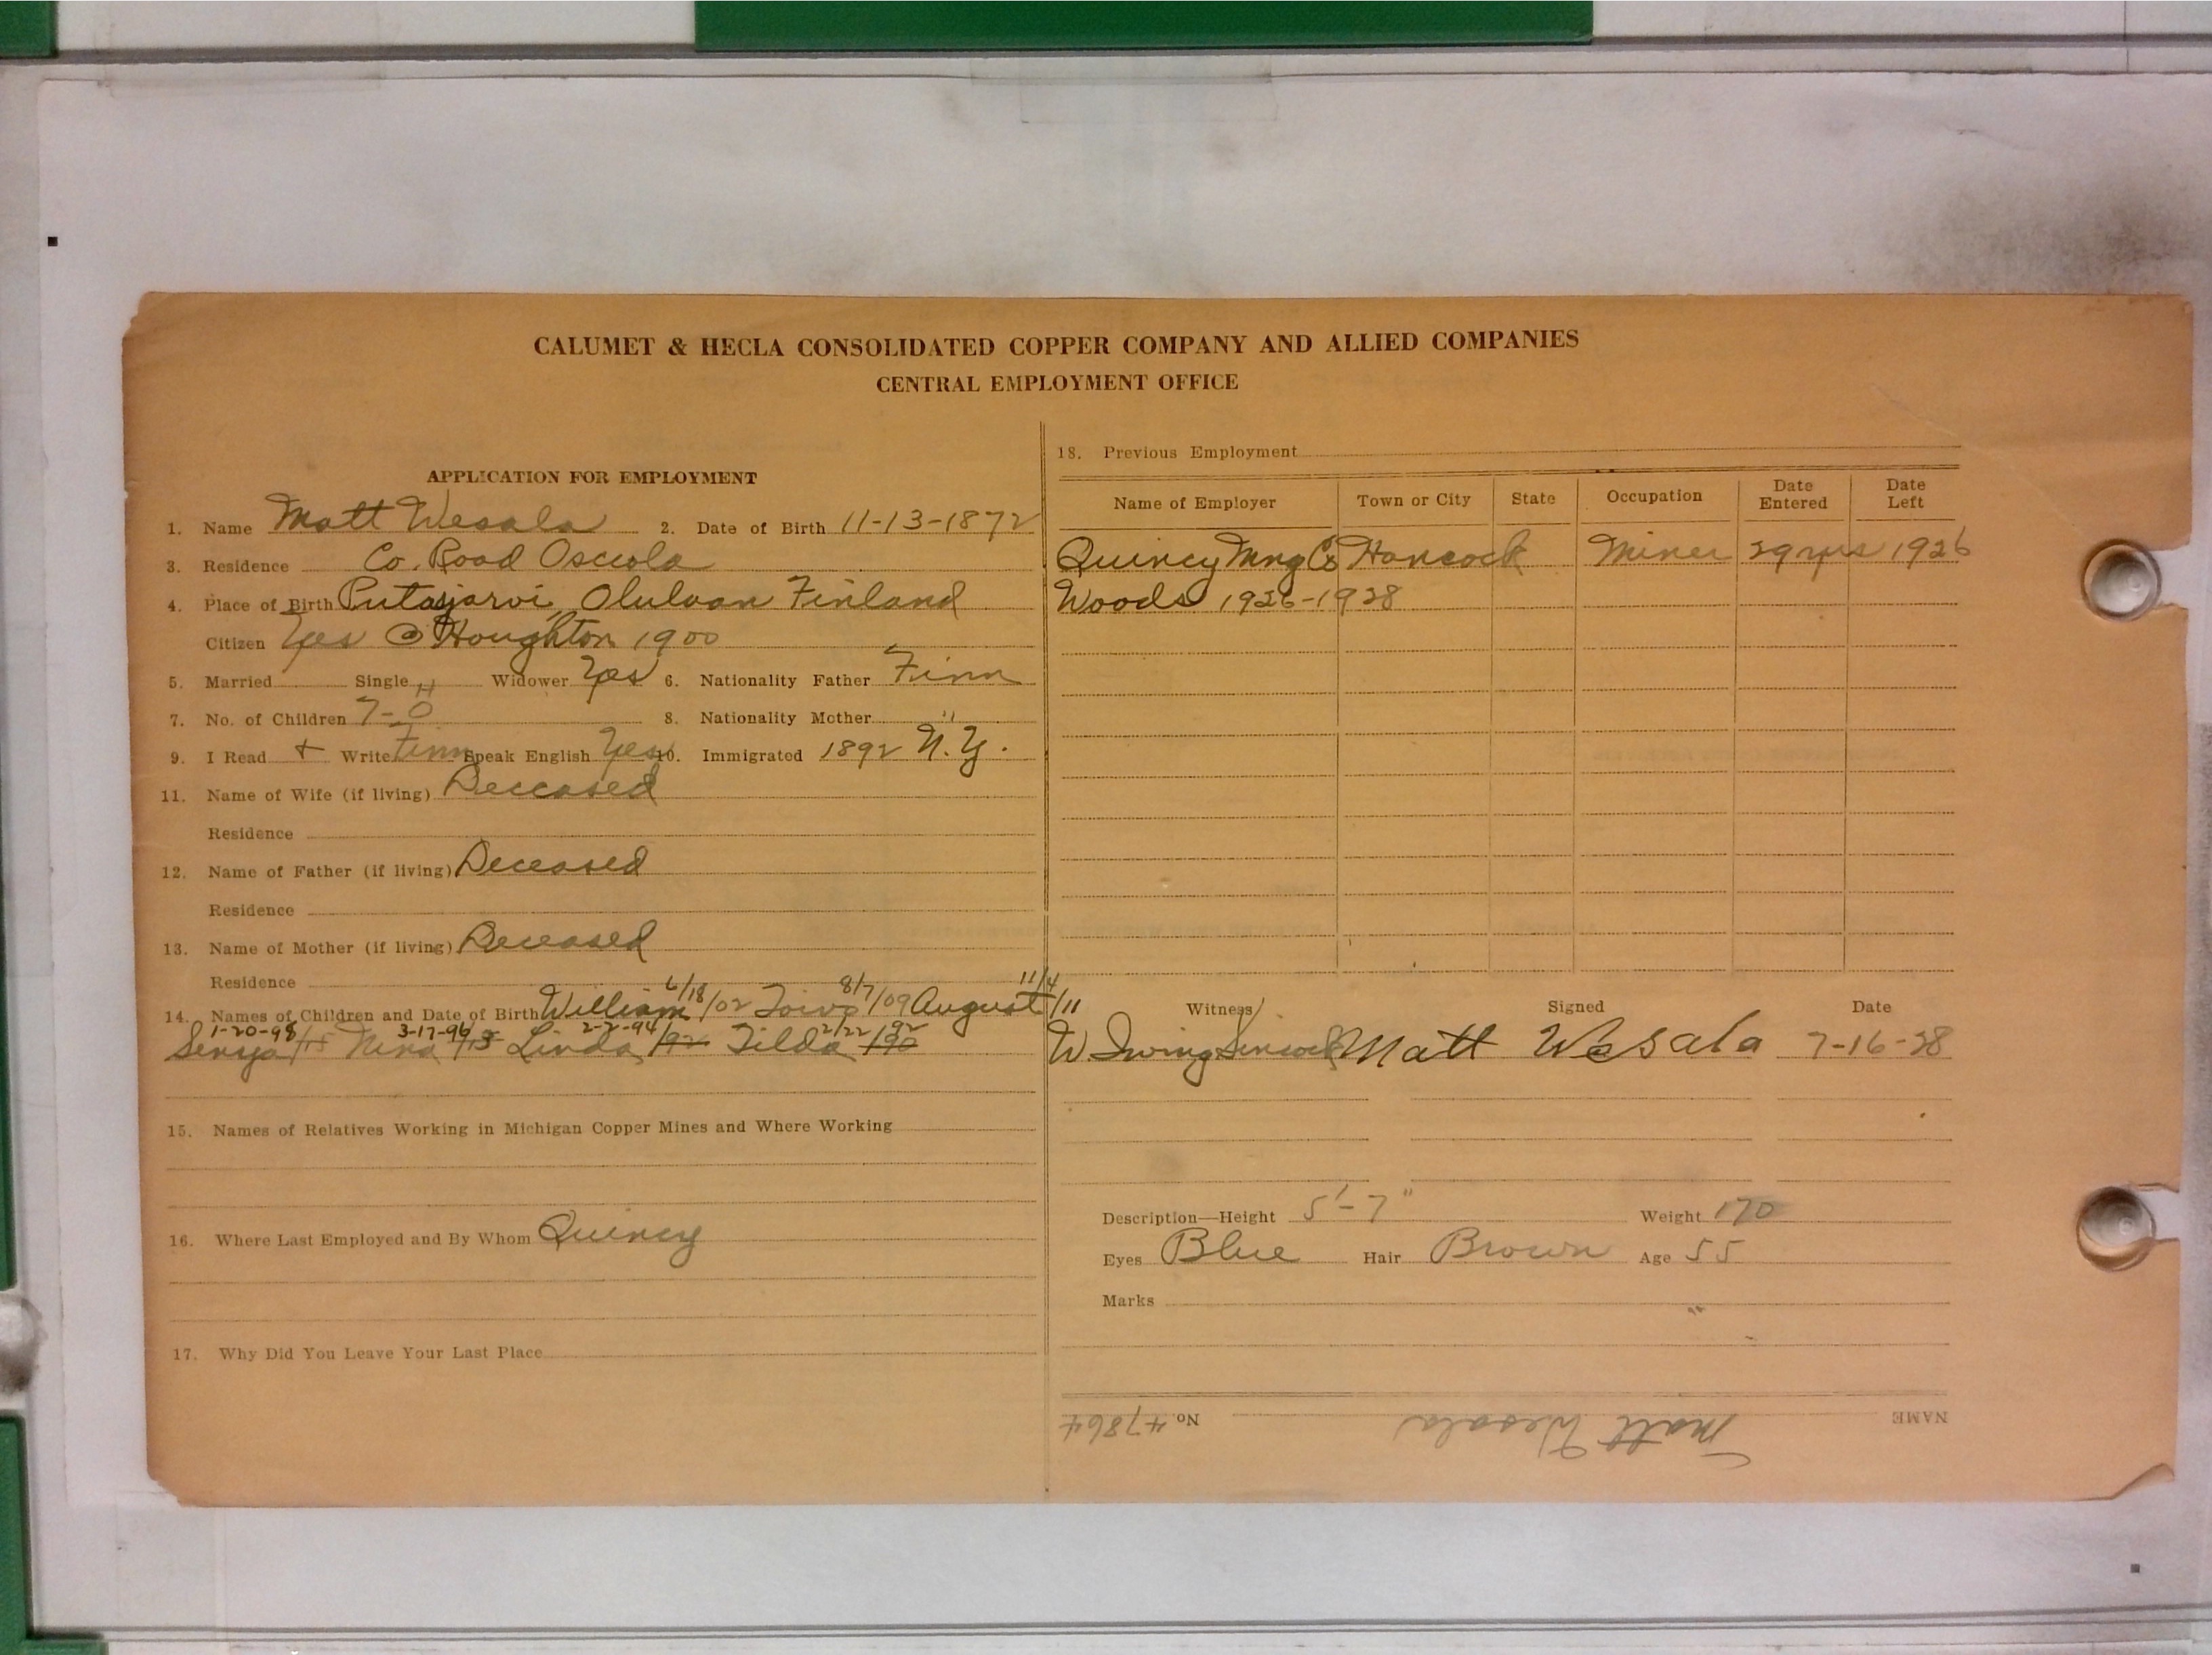 CALUMET & HECLA CONSOLIDATED COPPER COMPANY AND ALLIED COMPANIES
CENTRAL EMPLOYMENT OFFICE
APPLICATION FOR EMPLOYMENT
1. Name Matt Wesala 2. Date of Birth 11-13-1872
3. Residence Co. Road Osceola
4. Place of Birth Finland
Citizen Yes @ Houghton 1900
5. Married Single Widower Yes 6. Nationality Father Finn
7. No. of Children 7-0
8. Nationality Mother "
9. I Read + Write Finn Speak English Yes 10. Immigrated 1892 N.Y.
11. Name of Wife (if living) Deceased
Residence
12. Name of Father (if living) Deceased
Residence
13. Name of Mother (if living) Deceased
Residence
6/18 8/7 11/4
14. Names of Children and Date of Birth William /02 Toivo /09 August /11
1-20-98 3-17-96 2-2-94 2/22 92
Senja Nina Linda Tilda
15. Names of Relatives Working in Michigan Copper Mines and Where Working
16. Where Last Employed and By Whom Quincy
17. Why Did You Leave Your Last Place
18. Previous Employment
Name of Employer Town or City State Occupation Date Entered Date Left
Quincy Mng Co Hancock Miner 29 yrs 1926
Woods 1926-1928
Witness Signed Date
W. Irving Matt Wesala 7-16-28
Description—Height 5'-7" Weight 170
Eyes Blue Hair Brown Age 55
Marks
NAME Matt Wesala No. 47864